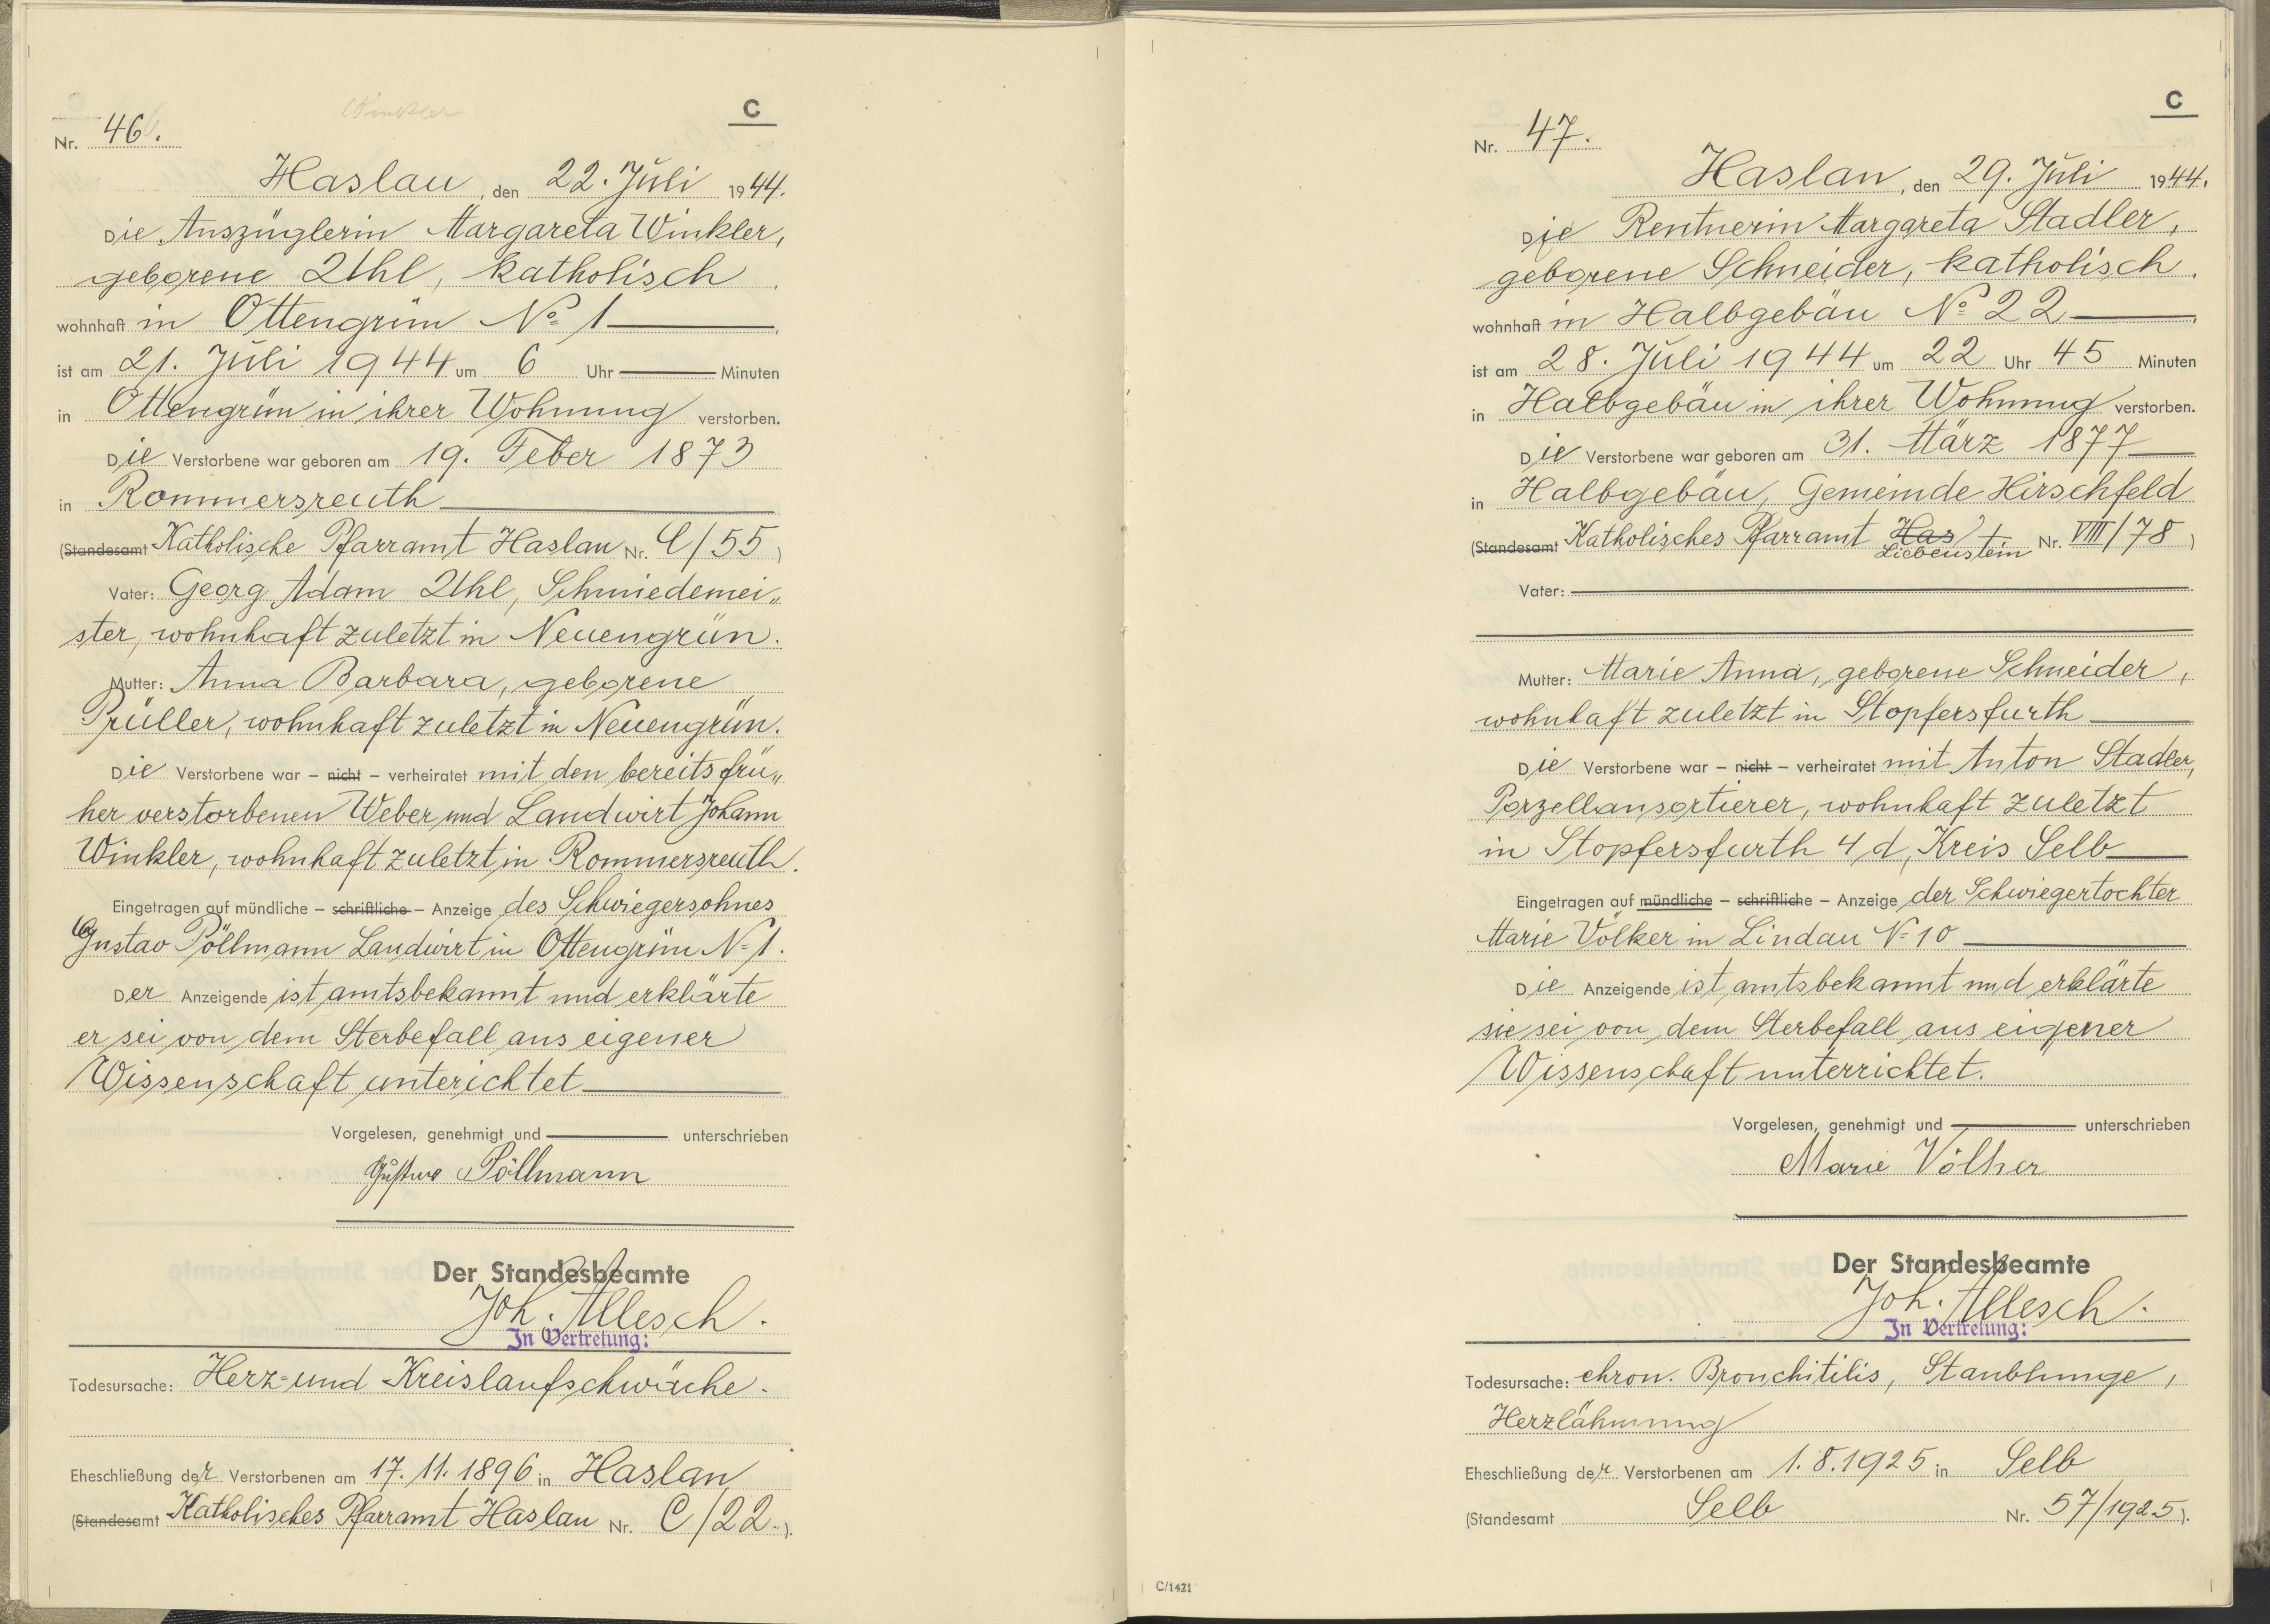 Winkler
C
Nr. 46.
Haslau, den 22. Juli 1944.
Die Auszüglerin Margareta Winkler,
geborene Uhl, katholisch
wohnhaft in Ottengrün No 1
ist am 21. Juli 1944 um 6 Uhr Minuten
in Ottengrün in ihrer Wohnung verstorben.
Die Verstorbene war geboren am 19. Feber 1873
in Rommersreuth
(Standesamt Katholische Pfarramt Haslau Nr. C/55)
Vater: Georg Adam Uhl, Schmiedemei„
ster, wohnhaft zuletzt in Neuengrün.
Mutter: Anna Barbara, geborene
Prüller, wohnhaft zuletzt in Neuengrün.
Die Verstorbene war – nicht – verheiratet mit den bereits frü„
her verstorbenen Weber und Landwirt Johann
Winkler, wohnhaft zuletzt in Rommersreuth.
Eingetragen auf mündliche – schriftliche – Anzeige des Schwiegersohnes
Gustav Pöllmann Landwirt in Ottengrün N=1.
Der Anzeigende ist amtsbekannt und erklärte
er sei von dem Sterbefall aus eigener
Wissenschaft unterichtet
Vorgelesen, genehmigt und unterschrieben
Gustav Pöllmann
Der Standesbeamte
Joh. Allesch.
In Vertretung:
Todesursache: Herz= und Kreislaufschwäche.
Eheschließung der Verstorbenen am 17. 11. 1896 in Haslau
(Standesamt Katholisches Pfarramt Haslau Nr. C/22.).
C
Nr. 47.
Haslau, den 29. Juli 1944.
Die Rentnerin Margareta Stadler,
geborene Schneider, katholisch.
wohnhaft in Halbgebäu No 22
ist am 28. Juli 1944 um 22 Uhr 45 Minuten
in Halbgebäu in ihrer Wohnung verstorben.
Die Verstorbene war geboren am 31. März 1877
in Halbgebäu, Gemeinde Hirschfeld
(Standesamt Katholisches Pfarramt Has Liebenstein Nr. VIII/78)
Vater:
Mutter: Marie Anna, geborene Schneider,
wohnhaft zuletzt in Stopfersfurth
Die Verstorbene war – nicht – verheiratet mit Anton Stadler,
Porzellansortierer, wohnhaft zuletzt
in Stopfersfurth 4 d, Kreis Selb
Eingetragen auf mündliche – schriftliche – Anzeige der Schwiegertochter
Marie Völker in Lindau N=10
Die Anzeigende ist amtsbekannt und erklärte
sie sei von dem Sterbefall aus eigener
Wissenschaft unterrichtet.
Vorgelesen, genehmigt und unterschrieben
Marie Völker
Der Standesbeamte
Joh. Allesch.
In Vertretung:
Todesursache: chron. Bronchitilis, Staublunge,
Herzlähmung
Eheschließung der Verstorbenen am 1. 8. 1925 in Selb
(Standesamt Selb Nr. 57/1925).
C/1421